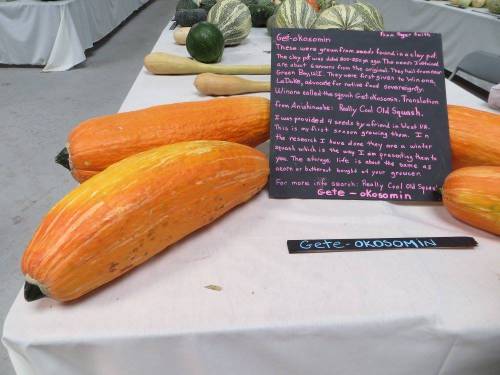 Get-okosomin
From Roger Smith
These were grown from seeds found in a clay pot.
The clay pot was dated 800-850 yrs ago. The seeds I obtained
are about 6 seasons from the original. They hail from near
Green Bay, WI. They were first given to Winona
LaDuke, advocate for native food sovereignty.
Winona called the squash Get-okosomin. Translation
from Anishinaabe: Really Cool Old Squash.
I was provided 4 seeds by a friend in West VA.
This is my first season growing them. In
the research I have done they are a winter
squash which is the way I am presenting them to
you. The storage life is about the same as
acorn or butternut bought at your grocer.
For more info search: Really Cool Old Squash
Gete - okosomin
Gete-OKOSOMIN